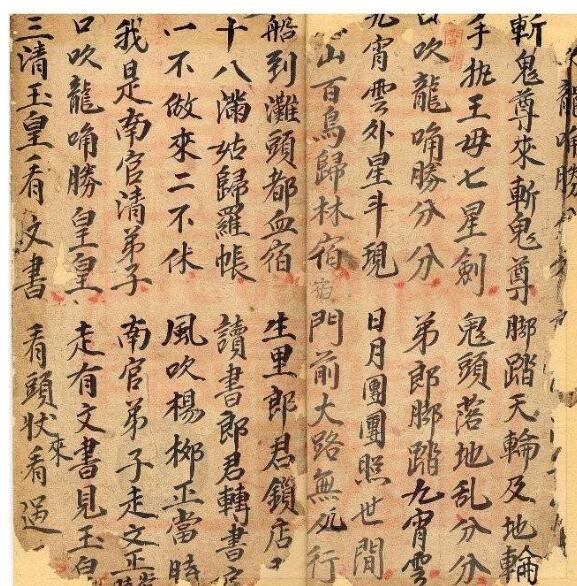 龍喃勝
斬鬼尊來斬鬼尊 脚踏天輪及地輪
手把王母七星劍 鬼頭落地乱分分
口吹龍喃勝分分 弟郎脚踏九宵雲
九宵雲外星斗現 日月團團照世間
山百鳥歸林宿 門前大路無行
船到灘頭都血宿 生里郎君鎖店
十八滿姑歸羅帳 讀書郎君轉書
一不做來二不休 風吹楊柳正當時
我是南官清弟子 南官弟子走文正
口吹龍喃勝皇皇 走有文書見玉皇
三清玉皇看文書 看頭狀來看過